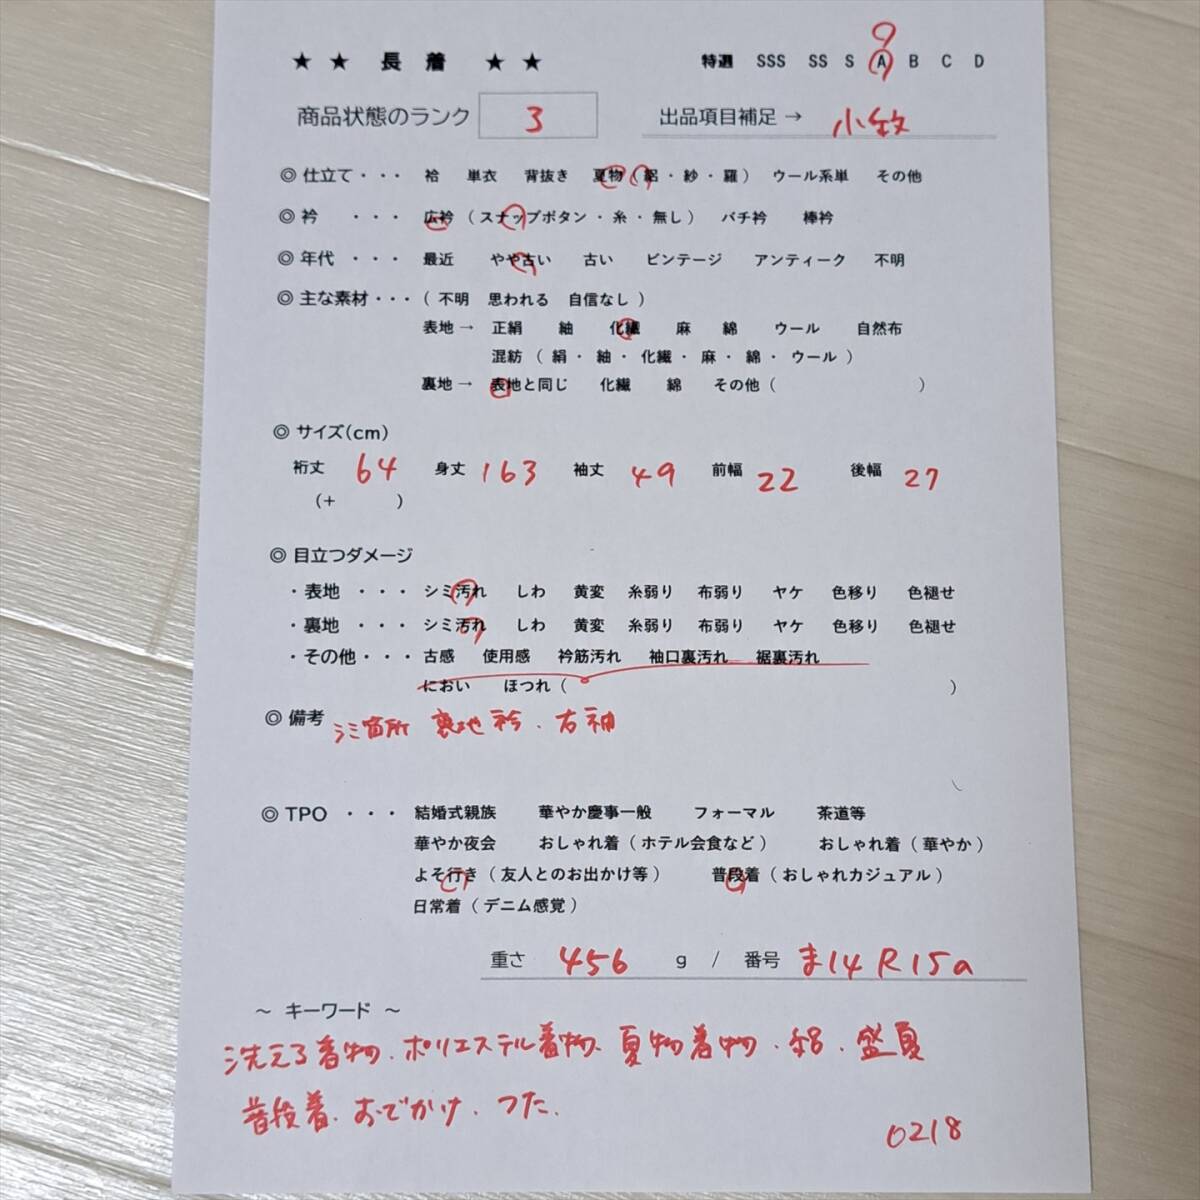 ★ ★ 長 着 ★ ★ 特選 SSS SS S A B C D
商品状態のランク 3 出品項目補足 → 小紋
◎ 仕立て・・・ 袷 単衣 背抜き 夏物（絽・紗・羅） ウール系単 その他
◎ 衿 ・・・ 広衿（スナップボタン・糸・無し） バチ衿 棒衿
◎ 年代 ・・・ 最近 やや古い 古い ビンテージ アンティーク 不明
◎ 主な素材・・・（ 不明 思われる 自信なし ）
表地 → 正絹 紬 化繊 麻 綿 ウール 自然布
混紡（ 絹・紬・化繊・麻・綿・ウール ）
裏地 → 表地と同じ 化繊 綿 その他（ ）
◎ サイズ(cm)
裄丈 64 身丈 163 袖丈 49 前幅 22 後幅 27
（+ ）
◎ 目立つダメージ
・表地 ・・・ シミ汚れ しわ 黄変 糸弱り 布弱り ヤケ 色移り 色褪せ
・裏地 ・・・ シミ汚れ しわ 黄変 糸弱り 布弱り ヤケ 色移り 色褪せ
・その他・・・ 古感 使用感 衿筋汚れ 袖口裏汚れ 裾裏汚れ
におい ほつれ（ ）
◎ 備考 シミ箇所 裏地衿・右袖
◎ TPO ・・・ 結婚式親族 華やか慶事一般 フォーマル 茶道等
華やか夜会 おしゃれ着（ホテル会食など） おしゃれ着（華やか）
よそ行き（友人とのお出かけ等） 普段着（おしゃれカジュアル）
日常着（デニム感覚）
重さ 456 g / 番号 ま14R15a
～ キーワード ～
洗える着物、ポリエステル着物、夏物着物、絽、盛夏
普段着、おでかけ、つた、
0218